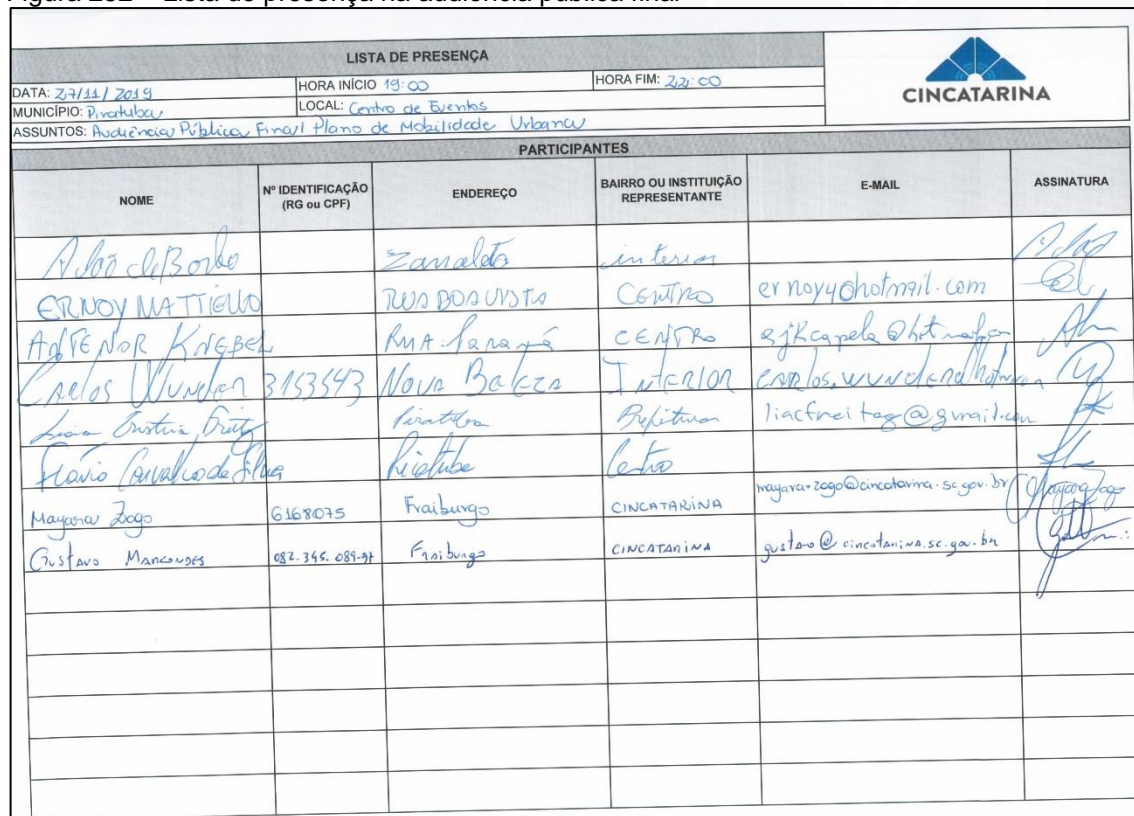 Figura 232 – Lista de presença na audiência pública final
LISTA DE PRESENÇA
CINCATARINA
DATA: 27/11/2019 HORA INÍCIO 19:00 HORA FIM: 22:00
MUNICÍPIO: Piratuba LOCAL: Centro de Eventos
ASSUNTOS: Audiência Pública Final Plano de Mobilidade Urbana
PARTICIPANTES
NOME Nº IDENTIFICAÇÃO (RG ou CPF) ENDEREÇO BAIRRO OU INSTITUIÇÃO REPRESENTANTE E-MAIL ASSINATURA
interior
ERNOY MATTIELLO RUA BOA VISTA CENTRO ernoy4@hotmail.com
ANTENOR KNEBEL RUA Paraná CENTRO
Carlos Wunder 3153543 Nova Interior
Piratuba Prefeitura liacfreitag@gmail.com
Flávio Carvalho da Silva Piratuba Centro
Mayara Zago 6168075 Fraiburgo CINCATARINA mayara.zago@cincatarina.sc.gov.br Mayara Zago
Gustavo Marcondes 082.345.089-97 Fraiburgo CINCATARINA gustavo@cincatarina.sc.gov.br